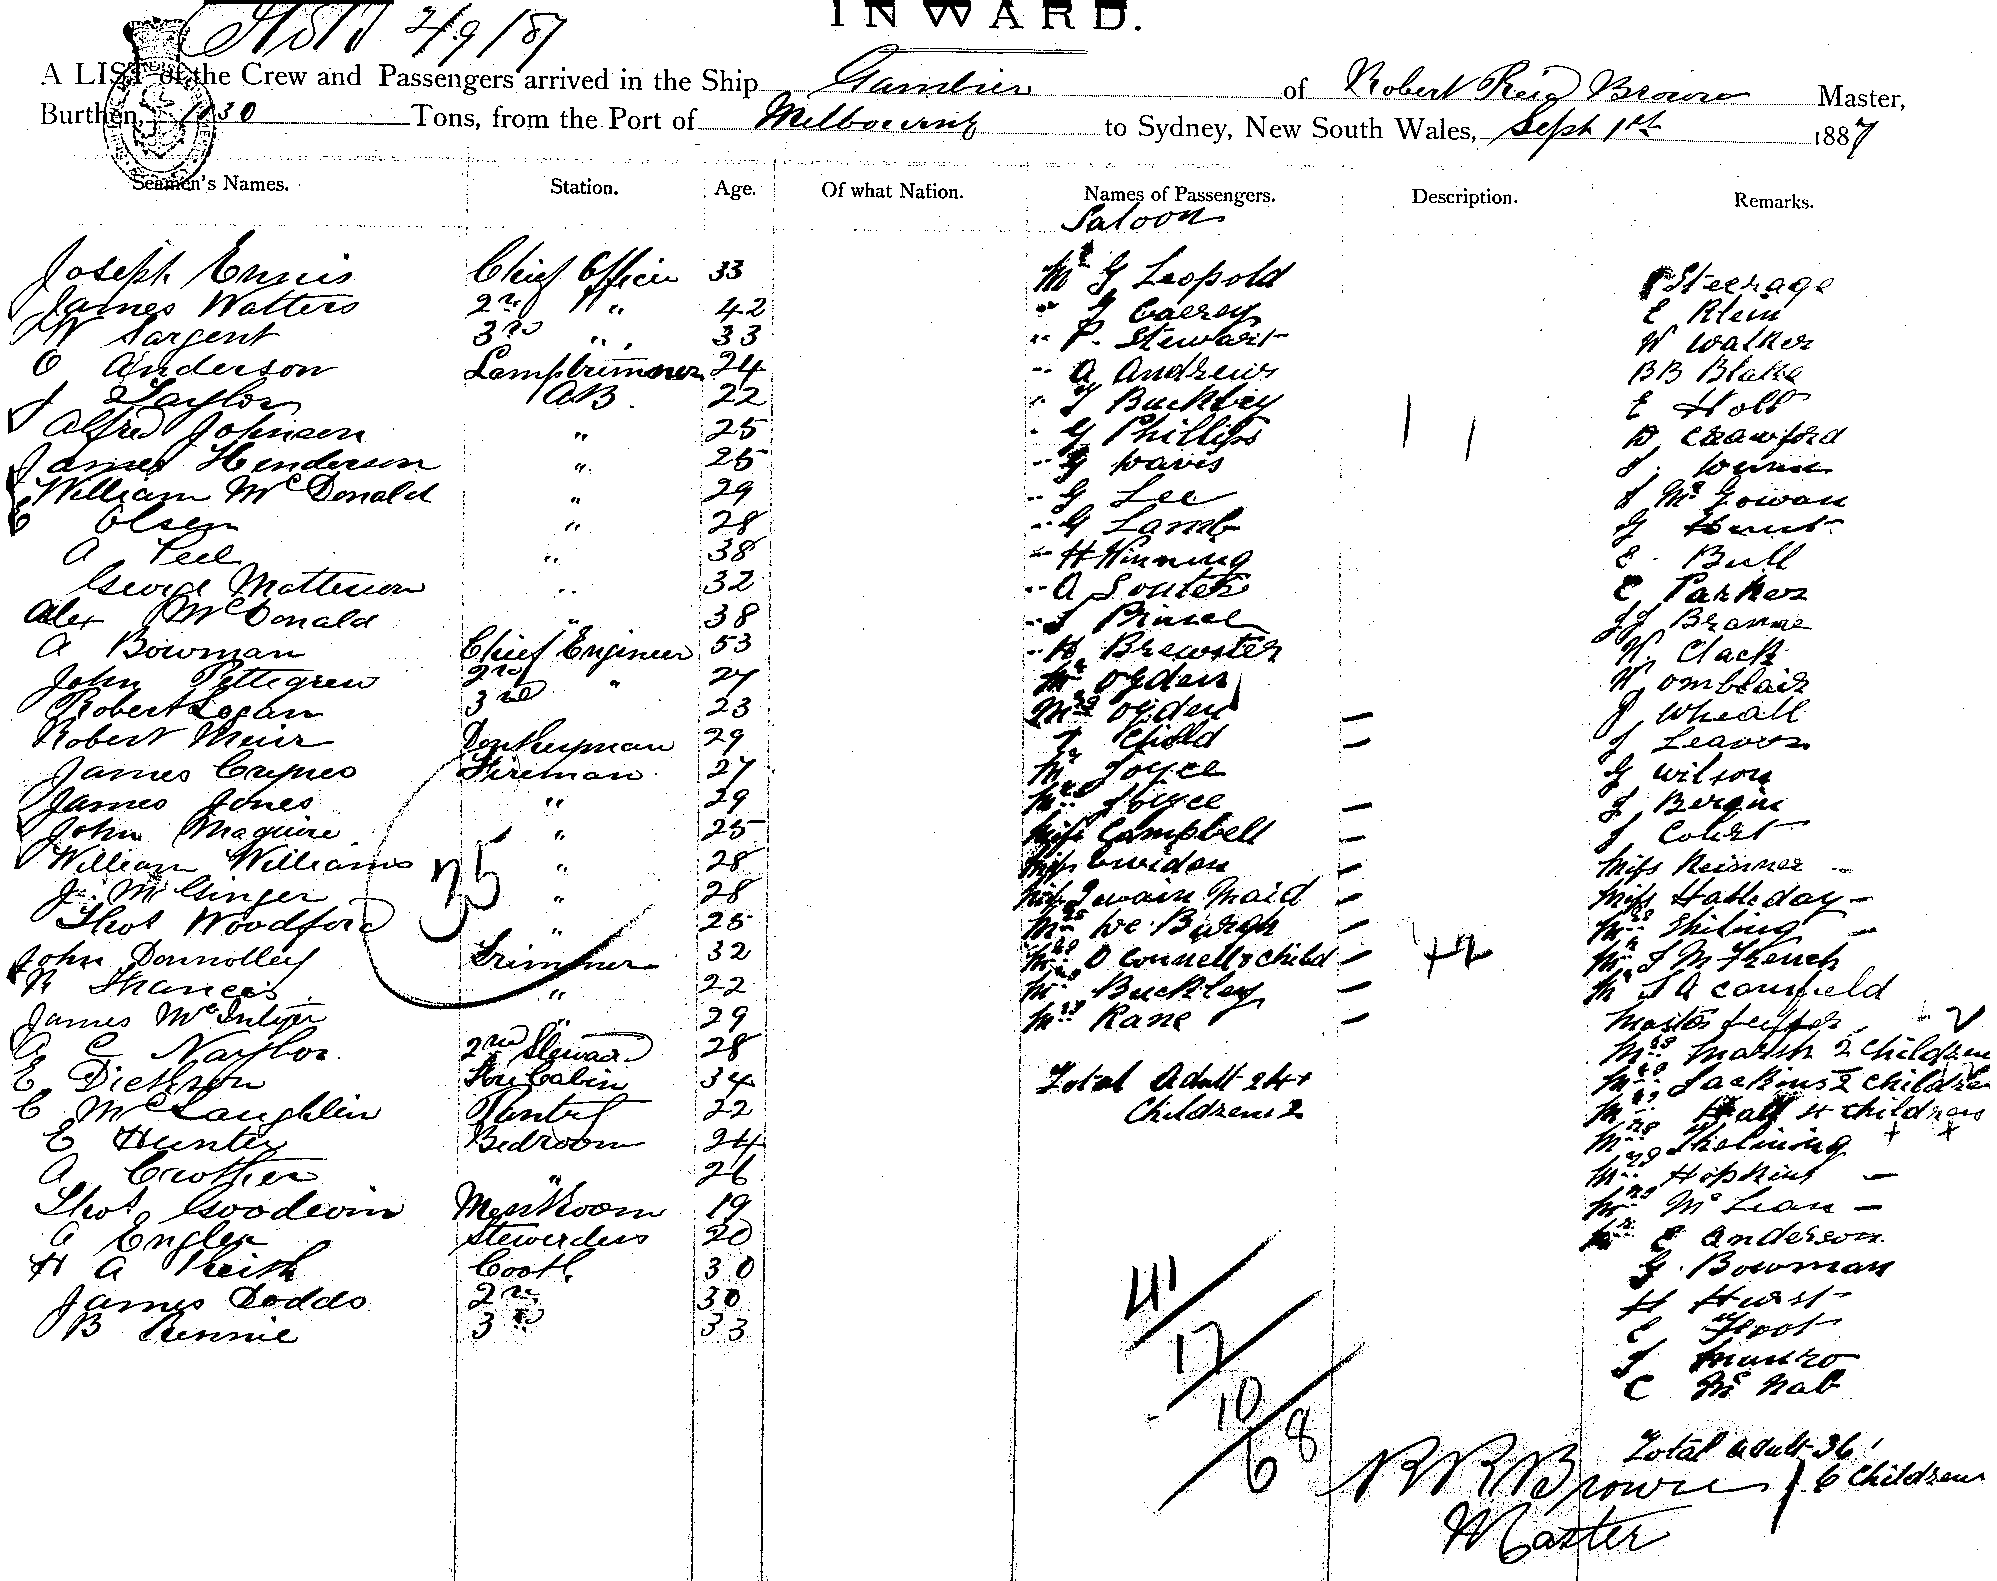 INWARD.
2/9/87
A LIST of the Crew and Passengers arrived in the Ship Gambier of Robert Reid Brown Master,
Burthen, 1030 Tons, from the Port of Melbourne to Sydney, New South Wales, Sept 1st 1887
Seamen's Names. Station. Age. Of what Nation. Names of Passengers. Description. Remarks.
Joseph Ennis Chief Officer 33
James Watters 2nd " " 42
W Sargent 3rd " 33
O Anderson Lamptrimmer 24
J Taylor AB. 22
Alfred Johnson " 25
James Henderson " 25
William McDonald " 29
C Olsen " 28
A Peel " 38
George Matterson " 32
Alex McDonald " 38
A Bowman Chief Engineer 53
John Pettigrew 2nd " 27
Robert Logan 3rd 23
Robert Meir Donkeyman 29
James Crynes Fireman 27
James Jones " 29
John Maguire " 25
William Williams " 28
J. McGinger " 28
Thos Woodford " 25
John Donnolley Trimmer 32
R Frances " 22
James McIntyer " 29
A C Naylor 2nd Steward 28
E Dickson Fore Cabin 34
C McLaughlin Pantry 22
E Hunter Bedroom 24
A Crother " 26
Thos Goodwin Messroom 19
A Engler Stewerdess 20
H A Keith Cook 30
James Dodds 2nd 30
B Rennie 3rd 33
35
Saloon
Mr G Leopold
" J Caerey
" P. Stewart
" A Andrews
" T Buckley
" G Phillips
" G Davis
" G Lee
" G Lamb
" H Hinning
" A Souter
" S Prince
" H Brewster
Mr Ogden
Mrs Ogden
" Child
Mr Joyce
Mrs Joyce
Miss Campbell
Miss
Miss Swain Maid
Mrs De Burgh
Mrs O Connell & child
Mrs Buckley
Mrs Kane
Total Adult 24
Children 2
Steerage
E Klein
W Walker
BB Blake
E Holt
D Crawford
J. Dunn
J McGowan
G Hunt
E. Bull
C Parker
JJ Branne
W. Clack
W Omblair
J Wheall
J Leavon
G Wilson
J Bergin
J Cohrt
Miss Reimner
Miss Halleday
Mrs Shiling
Mr J M French
Mr J A Canfield
Master
Mrs Marsh 2 Children
Mrs Jackins 2 Children
Mrs Hall 4 children
Mrs Thelining
Mrs Hopkins
Mrs McLean
Mr E Anderson
G. Bowman
H Hurst
E Floot
J Munro
C McNab
Total adult 36
6 Children
41
17
10
68
R R Brown
Master